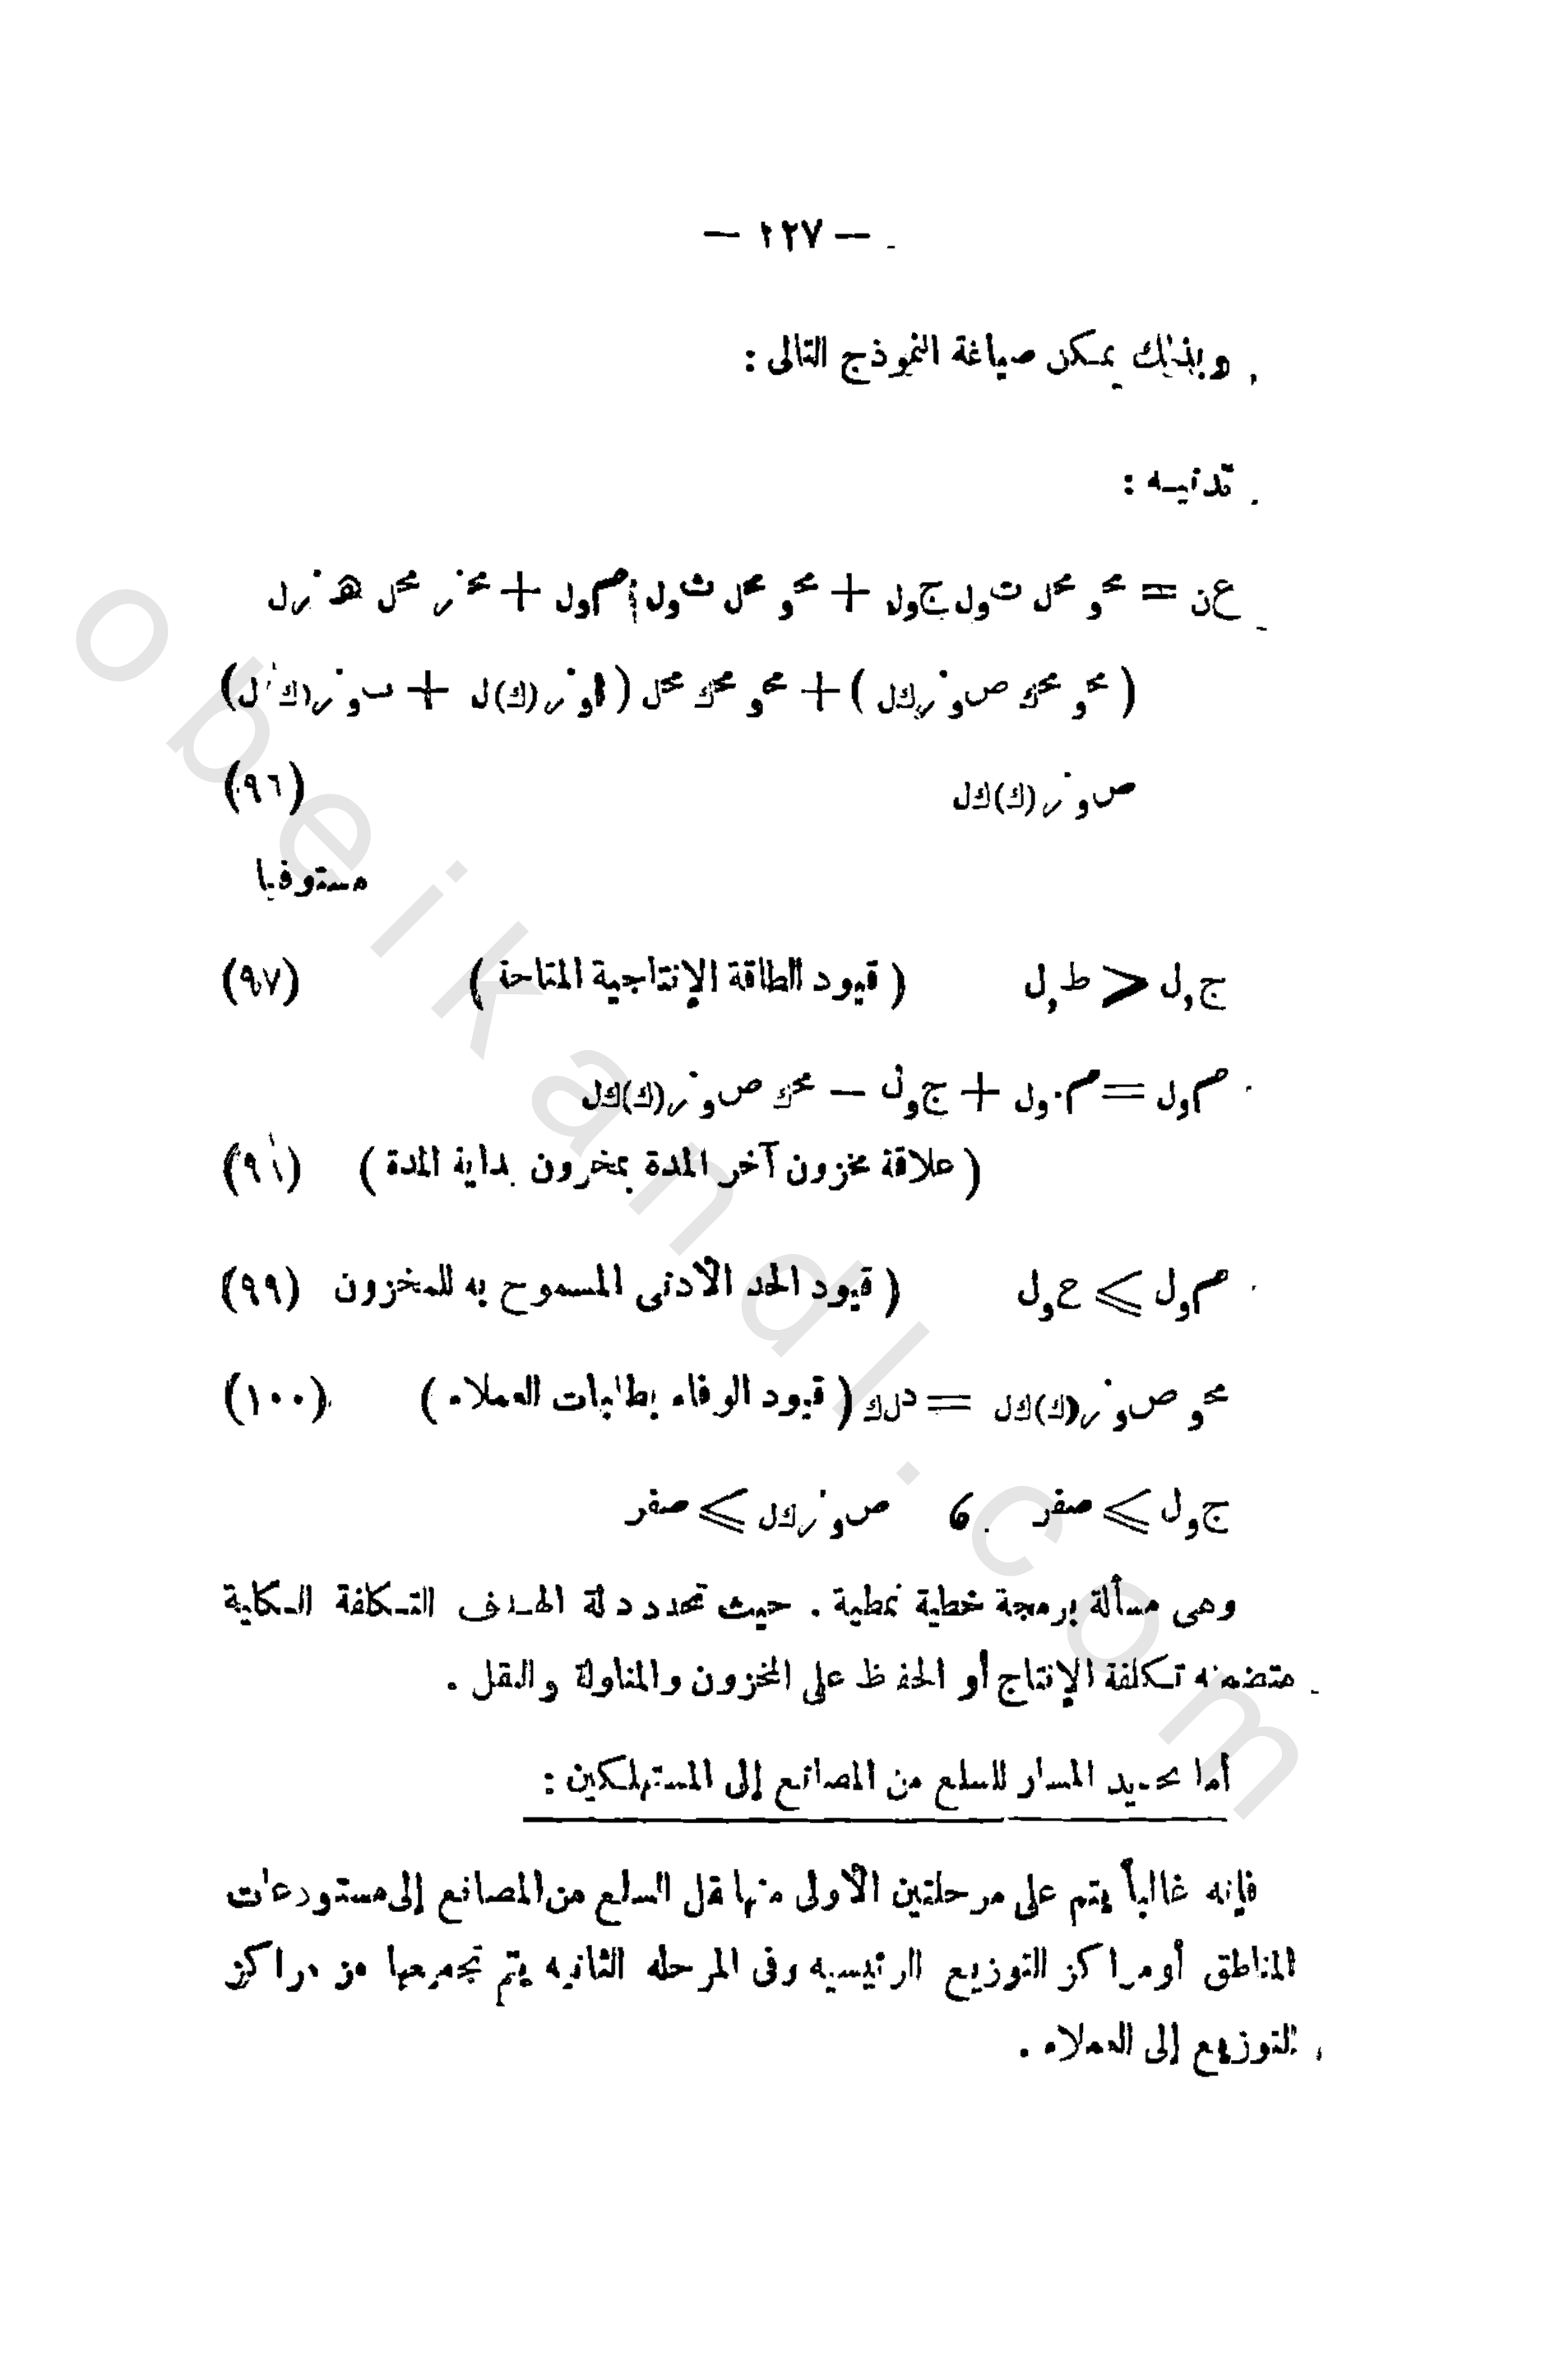 — ١٢٧ —
وبذلك يمكن صياغة النموذج التالى :
تدنيه :
عن = محو محل تول جول + محو محل ثول مول + محز محل هزل
( محو محك صوزكل ) + محو محك محل ( اوز(ك)ل + بوز(ك)ل )
صوز(ك)كل (٩٦)
مستوفيا
جول < طول ( قيود الطاقة الإنتاجية المتاحة ) (٩٧)
مول = م٠ول + جول — محك صوز(ك)كل
( علاقة مخزون آخر المدة بمخزون بداية المدة )
مول ⩾ حول ( قيود الحد الأدنى المسموح به للمخزون (٩٩)
محو صوز(ك)كل = دلك ( قيود الوفاء بطلبات العملاء ) (١٠٠)
جول ⩾ صفر 6 صوزكل ⩾ صفر
وهى مسألة برمجة خطية نمطية . حيث تحدد دلة الهدف التكلفة الكلية
متضمنه تكلفة الإنتاج أو الحفظ على المخزون والمناولة والنقل .
أما تحديد المسار للسلع من المصانع إلى المستهلكين :
فإنه غالباً يتم على مرحلتين الأولى منها نقل السلع من المصانع إلى مستودعات
المناطق أو مراكز التوزيع الرئيسيه وفى المرحله الثانيه يتم تجميعها من مراكز
التوزيع إلى العملاء .
obeikandl.com